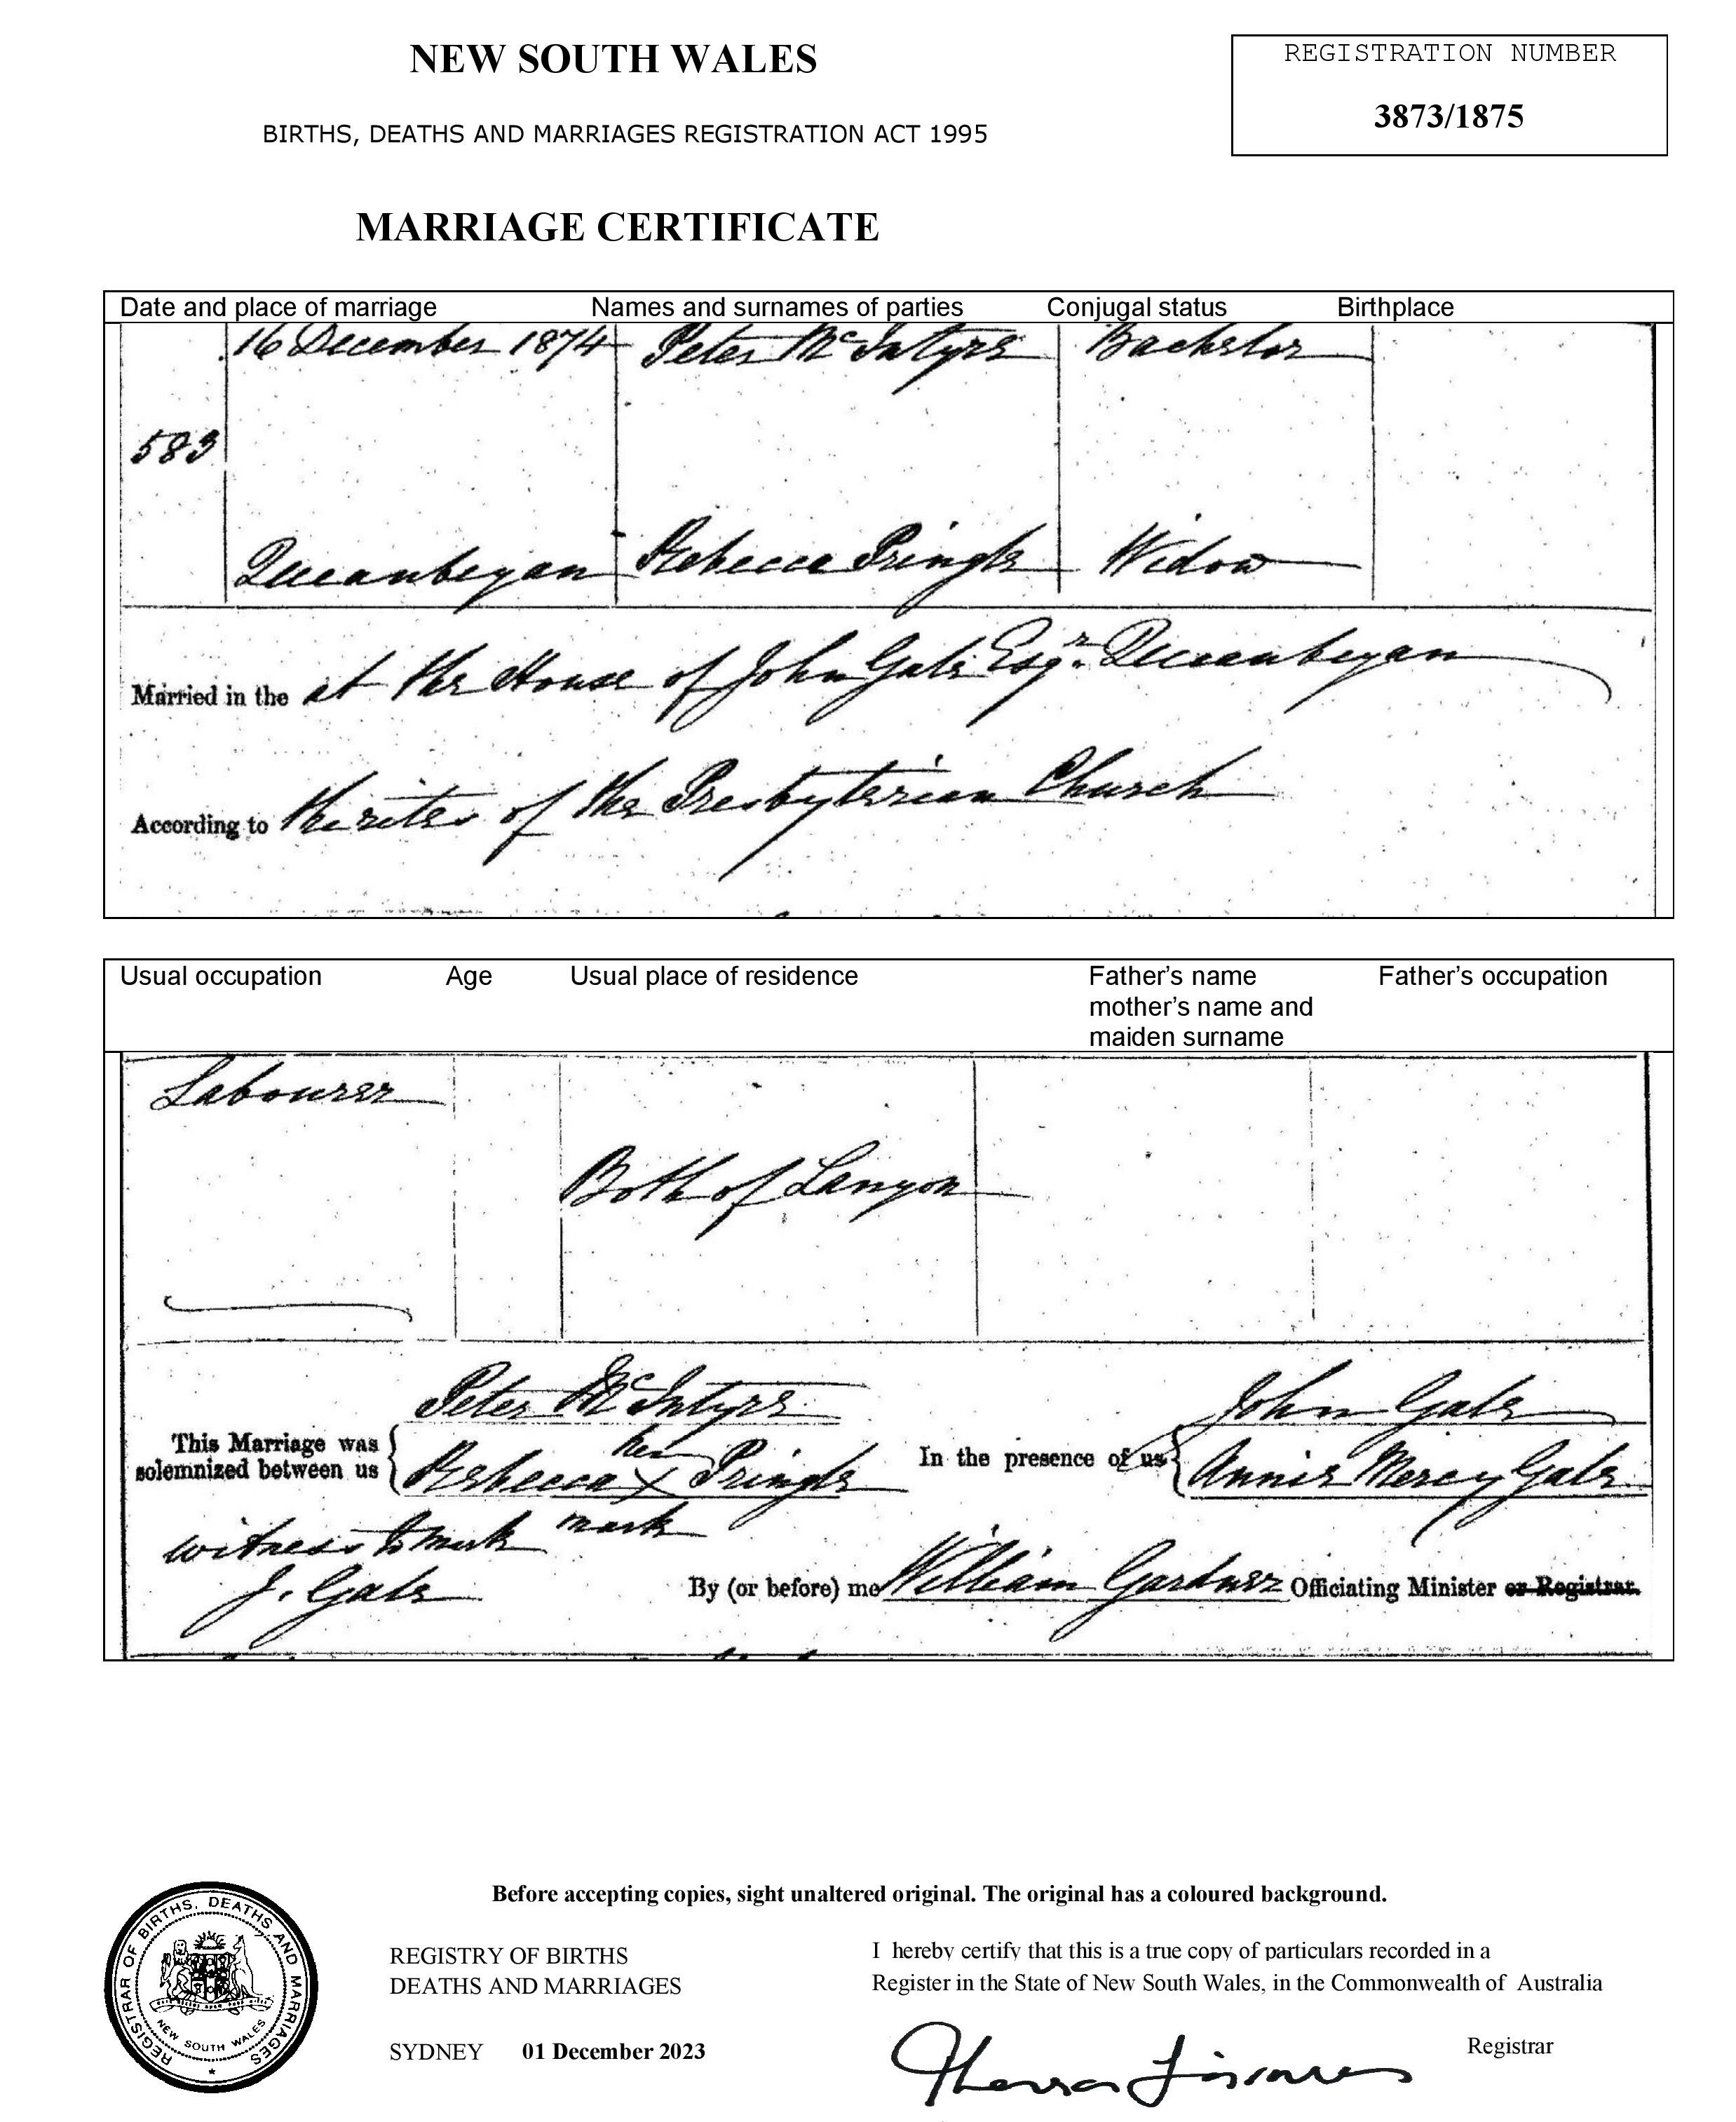 NEW SOUTH WALES
REGISTRATION NUMBER
3873/1875
BIRTHS, DEATHS AND MARRIAGES REGISTRATION ACT 1995
MARRIAGE CERTIFICATE
Date and place of marriage Names and surnames of parties Conjugal status Birthplace
16 December 1874 Peter McIntyre Bachelor
583
Queanbeyan Rebecca Pringle Widow
Married in the at the House of John Gale Esqr. Queanbeyan
According to the rites of the Presbyterian Church
Usual occupation Age Usual place of residence Father's name Father's occupation
mother's name and
maiden surname
Labourer
Both of Lanyon
Peter McIntyre John Gale
This Marriage was her
solemnized between us Rebecca X Pringle In the presence of us Annie Mercy Gale
witness to mark mark
J. Gale By (or before) me William Gardner Officiating Minister or Registrar.
Before accepting copies, sight unaltered original. The original has a coloured background.
REGISTRAR OF BIRTHS, DEATHS AND MARRIAGES
NEW SOUTH WALES
REGISTRY OF BIRTHS
DEATHS AND MARRIAGES
SYDNEY 01 December 2023
I hereby certify that this is a true copy of particulars recorded in a
Register in the State of New South Wales, in the Commonwealth of Australia
Registrar